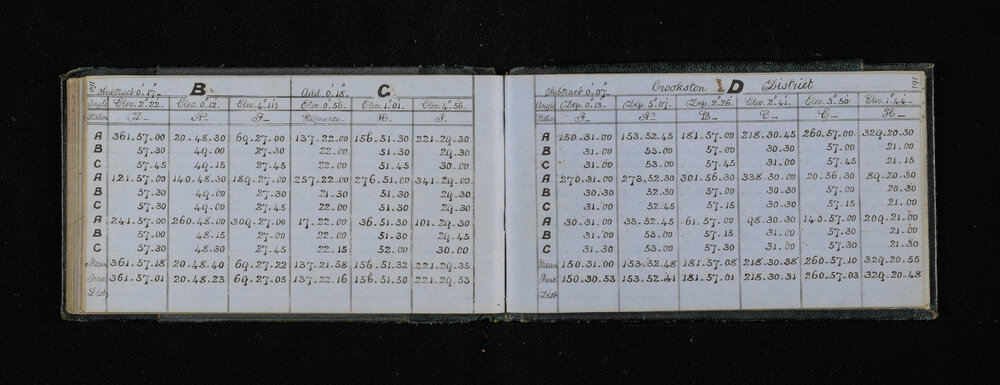 Subtract 0.17 B Add 0.18 C
Angle Elev. 2.22 Elev. 0.12 Elev. 4.11 Elev. 0.56 Elev. 1.01 Elev. 4.56
Station Reference H
A 361.57.00 20.48.30 69.27.00 137.22.00 156.51.30 221.29.30
B 57.30 49.00 27.30 22.00 51.30 29.30
C 57.45 49.15 27.45 22.00 51.45 30.00
A 121.57.00 140.48.30 189.27.00 257.22.00 276.51.00 341.29.00
B 57.30 49.00 27.30 21.30 51.30 29.30
C 57.30 49.00 27.45 22.00 51.30 29.30
A 241.57.00 260.48.00 309.27.00 17.22.00 36.51.30 101.29.30
B 57.00 48.15 27.30 22.00 51.30 29.45
C 57.30 48.30 27.45 22.15 52.00 30.00
Mean 361.57.18 20.48.40 69.27.22 137.21.58 156.51.32 221.29.35
True 361.57.01 20.48.23 69.27.05 137.22.16 156.51.50 221.29.53
Dist
Subtract 0.07 Crookston D District 191
Angle Dep. 0.13 Dep. 5.07 Dep. 2.26 Elev. 2.41 Elev. 3.50 Elev. 1.44
Station A B C G H
A 150.31.00 153.52.45 181.57.00 218.30.45 260.57.00 329.20.30
B 31.00 53.00 57.00 30.30 57.00 21.00
C 31.00 53.00 57.15 31.00 57.45 21.15
A 270.31.00 273.52.30 301.56.30 338.30.00 20.56.30 89.20.30
B 30.30 52.30 57.00 30.30 57.00 20.30
C 31.00 52.45 57.15 30.30 57.15 21.00
A 30.31.00 33.52.45 61.57.00 98.30.30 140.57.00 209.21.00
B 31.00 53.00 57.15 31.00 57.15 21.00
C 31.30 53.00 57.30 31.00 57.30 21.30
Mean 150.31.00 153.52.48 181.57.08 218.30.38 260.57.10 329.20.55
True 150.30.53 153.52.41 181.57.01 218.30.31 260.57.03 329.20.48
Dist